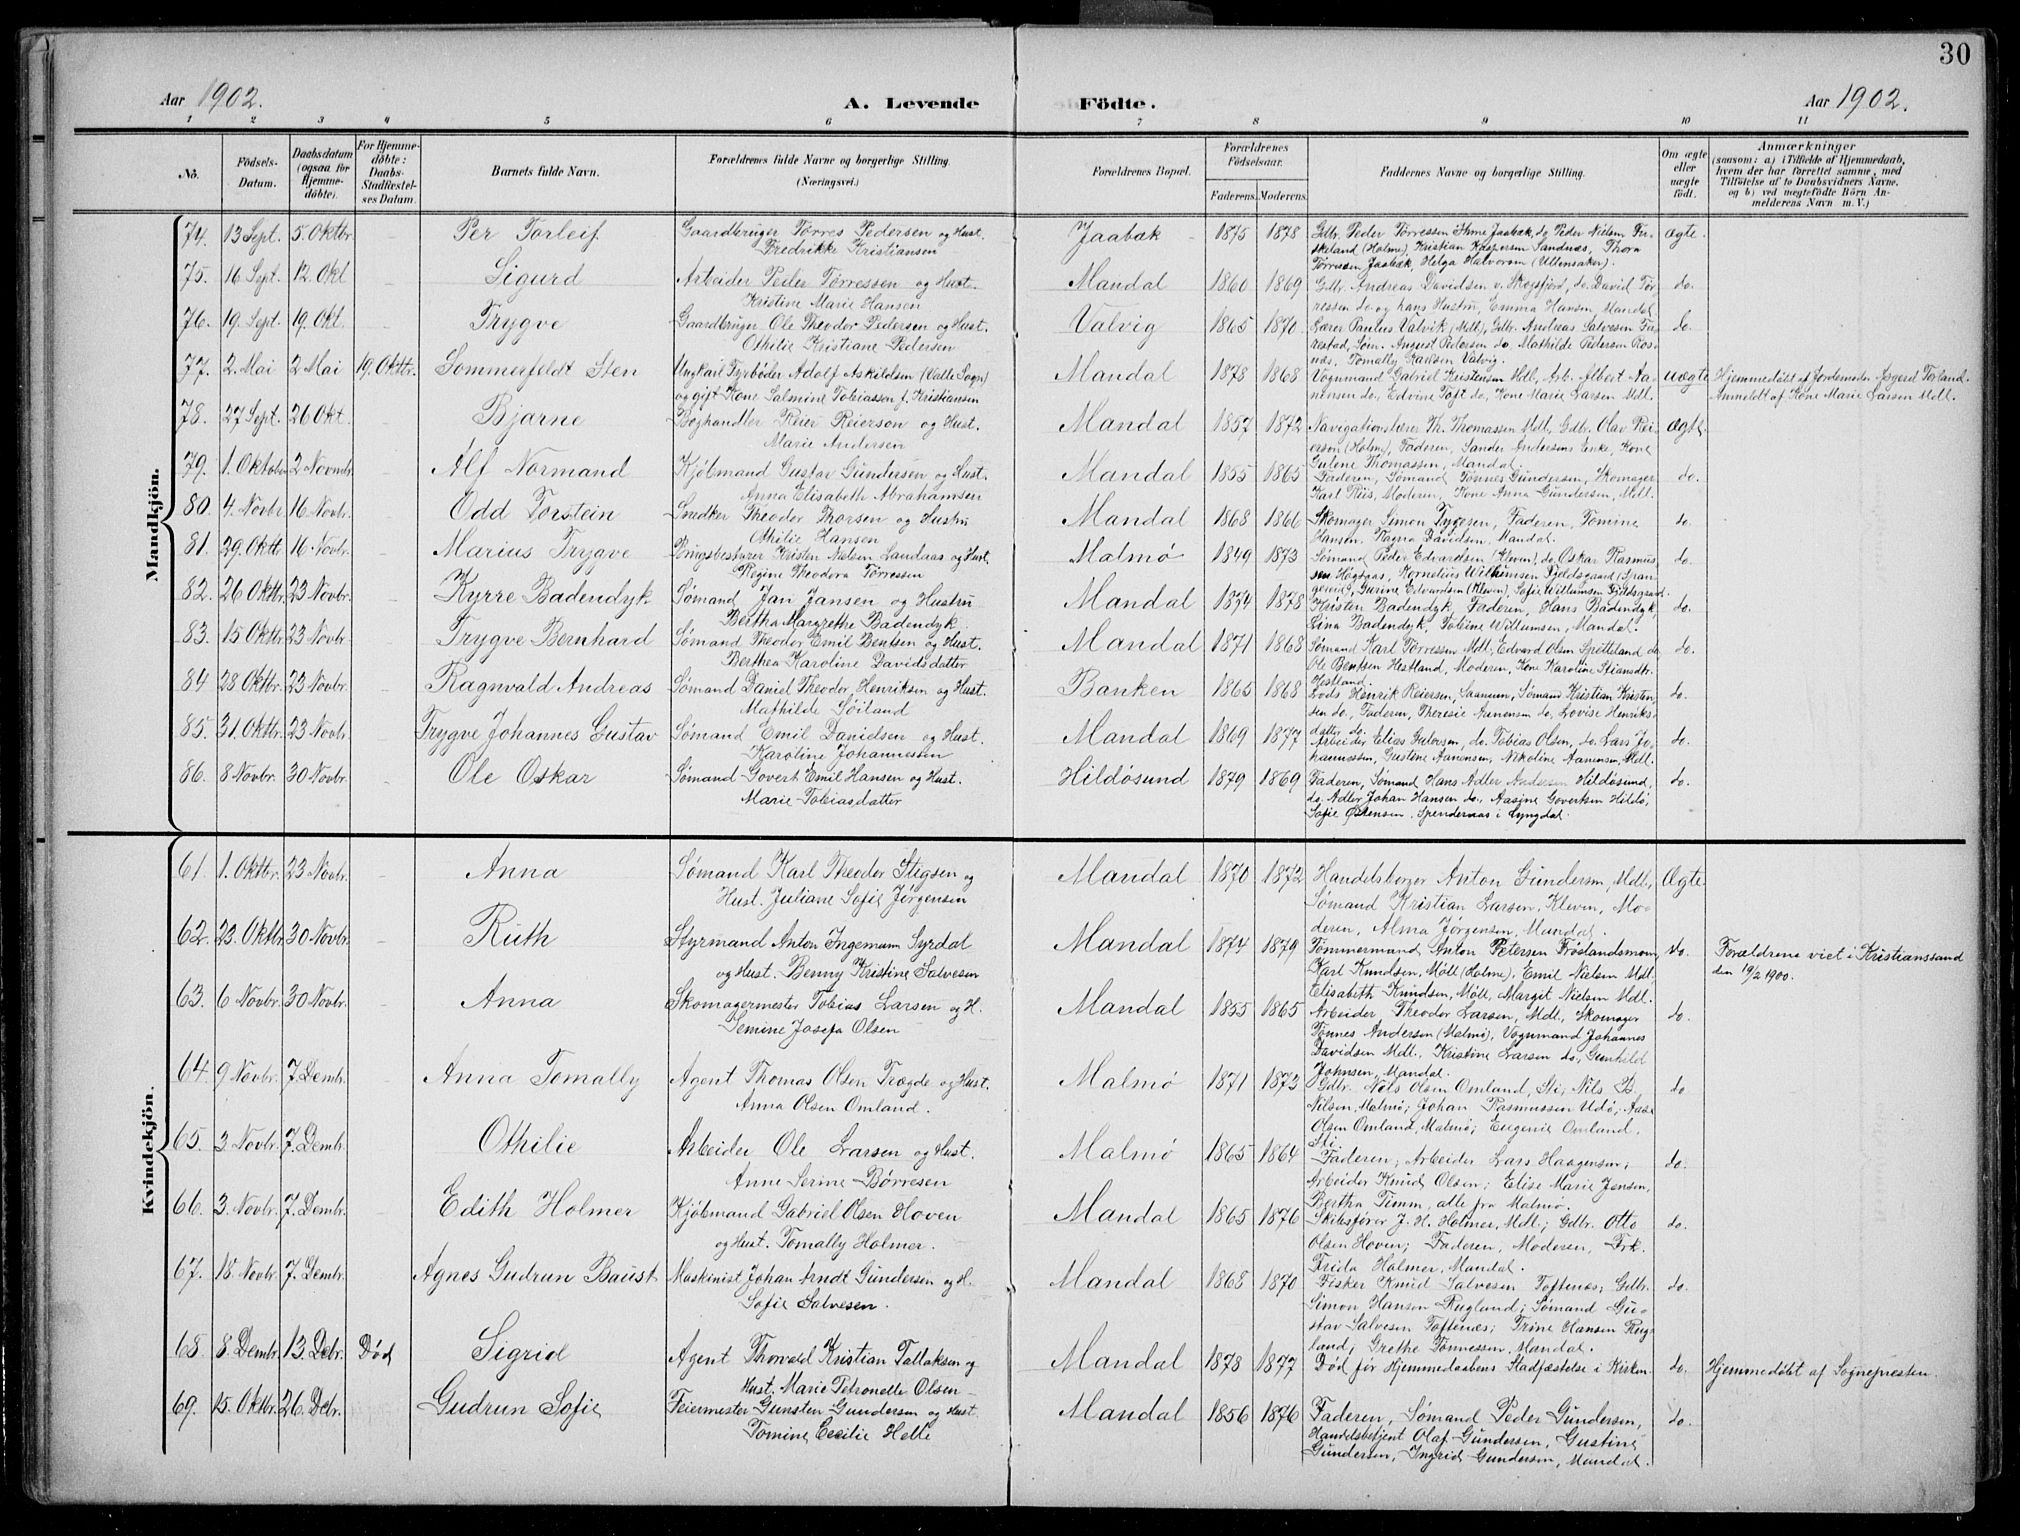 30
Aar 1902.
A. Levende Födte.
Aar 1902.
1 2 3 4 5 6 7 8 9 10 11
Nô.
Födsels-Datum.
Daabsdatum (ogsaa for Hjemme-döbte).
For Hjemme-döbte: Daabs-Stadfæstel-ses Datum.
Barnets fulde Navn.
Forældrenes fulde Navne og borgerlige Stilling.
(Næringsvei.)
Forældrenes Bopæl.
Forældrenes Födselsaar.
Faderens. Moderens.
Faddernes Navne og borgerlige Stilling.
Om ægte eller uægte födt.
Anmærkninger
(saasom: a) i Tilfælde af Hjemmedaab, hvem der har forrettet samme, med Tilföielse af to Daabsvidners Navne, og b) ved uægtefödte Börn An-melderens Navn m. V.)
Mandkjön.
74. 13 Sept. 5. Oktbr. Per Torleif Gaardbruger Tørres Pedersen og Hust. Jaabæk 1875 1878 Gbr. Peder Tørressen Jaabæk, do Peder Nielsen ægte.
Fredrikke Kristiansen (Holme), Kristian Kaspersen Sandnæs, Thora
Tørressen Jaabæk, Helga Halvorsen (Ullensaker).
75. 16 Sept. 12. Okt Sigurd Arbeider Peder Tørressen og Hust. Mandal 1860 1869 Gbr. Andreas Davidsen v. Skogsfjord, do. David Tør- do.
Kristine Marie Hansen ressen do og hans Hustru, Emma Hansen, Mandal
76. 19. Sept. 19. Okt. Trygve Gaardbruger Ole Theodor Pedersen og Hust. Valvig 1865 1870 Lærer Paulus Valvik (Mdl), Gbr. Andreas Salvesen do.
Othilie Kristiane Pedersen August Pedersen do. Mathilde Pedersen Ros-
næs, Tomally Karlsen Valvig.
77. 2. Mai 2 Mai 19. Oktbr. Sommerfeldt Sten Ungkarl Fyrbøder Adolf Askildsen (Valle Sogn) Mandal 1878 1868 Vognmand Gabriel Kristensen Mdl, Arb. Albert Aa- uægte Hjemmedøbt af Jordemoder Asgerd Torland.
og gift Kone Salmine Tobiassen f. Kristiansen ninsen do, Edvine Toft do, Kone Marie Larsen Mdl. Anmeldt af Kone Marie Larsen Mdl.
78. 27 Sept. 26 Okt. Bjarne Boghandler Reier Reierson og Hust. Mandal 1857 1872 Navigationslærer Th. Thomassen Mdl, Gbr. Olav Rei- Ægte.
Marie Andersen ersen (Holme), Faderen, Sander Andersens Enke, Kone
Gulene Thomassen, Mandal.
79. 1. Oktober 2 Novmbr. Alf Normand Kjøbmand Gustav Gundersen og Hust. Mandal 1855 1865 Faderen, Sømand Tønnes Gundersen, Skomager do.
Anna Elisabeth Abrahamsen Karl Reis, Moderen, Kone Anna Gundersen, Mdl.
80. 4. Novbr. 16 Novbr. Odd Torstein Snedker Theodor Thorsen og Hustru Mandal 1868 1866 Skomager Simon Faderen, Tomine do.
Othilie Hansen Hansen, Magna Davidsen, Mandal.
81. 29 Oktbr. 16 Novbr. Marius Trygve Brugsbestyrer Kristen Nielsen Landaas og Hust. Malmø 1849 1873 Sømand Peder Edvardsen (Kleven), do Oskar Rasmus- do.
Regine Theodora Tørressen sen Høgsaas, Kornelius Willumsen Fjeldsgaard (Span-
gereid), Gurine Edvardsen (Kleven), Sofie Willumsen Fjeldsgaard.
82. 26 Oktbr. 23 Novbr. Kyrre Badendyk Sømand Jan Jansen og Hustru Mandal 1874 1878 Kristen Badendyk, Faderen, Hans Badendyk, do.
Bertha Margrethe Badendyk. Lina Badendyk, Tobine Willumsen, Mandal.
83. 15 Oktbr. 23 Novbr. Trygve Bernhard Sømand Theodor Emil Bentsen og Hust. Mandal 1871 1868 Sømand Karl Tørressen Mdl, Edvard Olsen Spetteland do. do.
Berthea Karoline Davidsdatter Ole Bentsen Hestland, Moderen, Kone Karoline Stiansdtr.
Hestland.
84 28 Oktbr. 23 Novbr. Ragnvald Andreas Sømand Daniel Theodor Henriksen og Hust. Banken 1865 1868 Lods Henrik Reiersen, Saanum, Sømand Kristian Kristen- do.
Mathilde Søiland sen do., Faderen, Theresie Aanensen do, Lovise Henriks-
datter do.
85. 31. Oktbr. 23 Novbr. Trygve Johannes Gustav Sømand Emil Danielsen og Hust. Mandal 1869 1877 Arbeider Elias Pedersen, do. Tobias Olsen, do. Lars Jo- do.
Karoline Johannessen hannessen, Gustene Aanensen, Nikoline Aanensen, Mdl.
86. 8 Novbr. 30 Novbr. Ole Oskar Sømand Govert Emil Hansen og Hust. Hildøsund 1879 1869 Faderen, Sømand Hans Adler Andersen Hildøsund, do.
Marie Tobiasdatter do. Adler Johan Hansen do., Aasine Govertsen Hildø,
Sofie Østensen. Spendernaas i Lyngdal.
Kvindekjön.
61. 1. Oktbr. 23 Novbr. Anna Sømand Karl Theodor Stigsen og Mandal 1870 1872 Handelsborger Anton Gundersen, Mdl., Ægte.
Hust. Juliane Sofie Jørgensen Sømand Kristian Larsen, Kleven, Mo-
deren, Alma Jørgensen, Mandal.
62. 23. Oktbr. 30 Novbr. Ruth Styrmand Anton Ingemann Syrdal Mandal 1874 1879 Tømmermand Anton Petersen Frøslandsmoen, do. Forældrene viet i Kristianssand
og Hust. Benny Kristine Salvesen Karl Knudsen, Møll (Holme), Emil Nielsen Mdl. den 19/2 1900.
Elisabeth Knudsen, Møll, Margit Nielsen Mdl.
63. 6 Novbr. 30 Novbr. Anna Skomagermester Tobias Larsen og H. Mandal 1855 1865 Arbeider Theodor Larsen, Mdl., Skomager do.
Semine Josefa Olsen Tønnes Andersen (Malmø), Vognmand Johannes
Davidsen Mdl., Kristine Larsen do, Gunhild
Johnsen, Mandal.
64. 9 Novbr. 7. Dembr. Anna Tomally Agent Thomas Olsen Trægde og Hust. Malmø 1871 1873 Gdbr. Nils Olsen Omland, Sti, Nils B. do
Anna Olsen Omland. Nilsen, Malmø; Johan Rasmussen Udø; Aase
Olsen Omland, Malmø; Eugenie Omland.
Sti.
65. 3 Novbr. 7. Dembr. Othilie Arbeider Ole Larsen og Hust. Malmø 1865 1864 Faderen; Arbeider Lars Haagensen; do.
Anne Serine Børresen Arbeider Knud Olsen; Elise Marie Jensen,
Bertha Timm, alle fra Malmø.
66. 3. Novbr. 7. Dembr. Edith Holmer Kjøbmand Gabriel Olsen Hoven Mandal 1865 1876 Skibsfører J. H. Holmer, Mdl.; Gdbr. Otto do.
og Hust. Tomally Holmer. Olsen Hoven; Faderen, Moderen, Frk.
Frida Holmer, Mandal.
67. 18. Novbr. 7. Dembr. Agnes Gudrun Baust Maskinist Johan Arndt Gundersen og H. Mandal 1868 1870 Fisker Knud Salvesen Toftenæs; Gdbr. do.
Sofie Salvesen. Simon Hansen Rugland; Sømand Gu-
stav Salvesen Toftenæs; Trine Hansen Rug-
land; Grethe Tønnessen, Mandal.
68. 8. Dembr. 13. Debr. Død Sigrid Agent Thorvald Kristian Tallaksen og Mandal 1878 1877 Død før Hjemmedaabens Stadfæstelse i Kirken. do. Hjemmedøbt af Sognepresten.
Hust. Marie Petronelle Olsen
69. 15. Oktbr. 26. Debr. Gudrun Sofie Feiermester Gunsten Gundersen og Hust. Mandal 1856 1876 Faderen, Sømand Peder Gundersen, do.
Tomine Cecilie Helle Handelsbetjent Olaf Gundersen, Gustine
Gundersen, Ingrid Gundersen, Mandal.